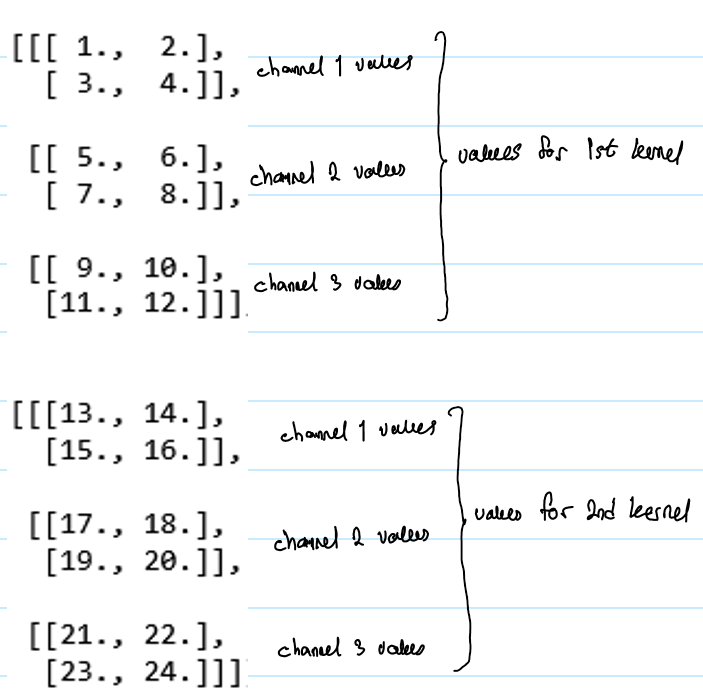 [[[ 1., 2.],
[ 3., 4.]],
channel 1 values
[[ 5., 6.],
[ 7., 8.]],
channel 2 values
[[ 9., 10.],
[11., 12.]]]
channel 3 values
values for 1st kernel
[[[13., 14.],
[15., 16.]],
channel 1 values
[[17., 18.],
[19., 20.]],
channel 2 values
[[21., 22.],
[23., 24.]]]
channel 3 values
values for 2nd kernel